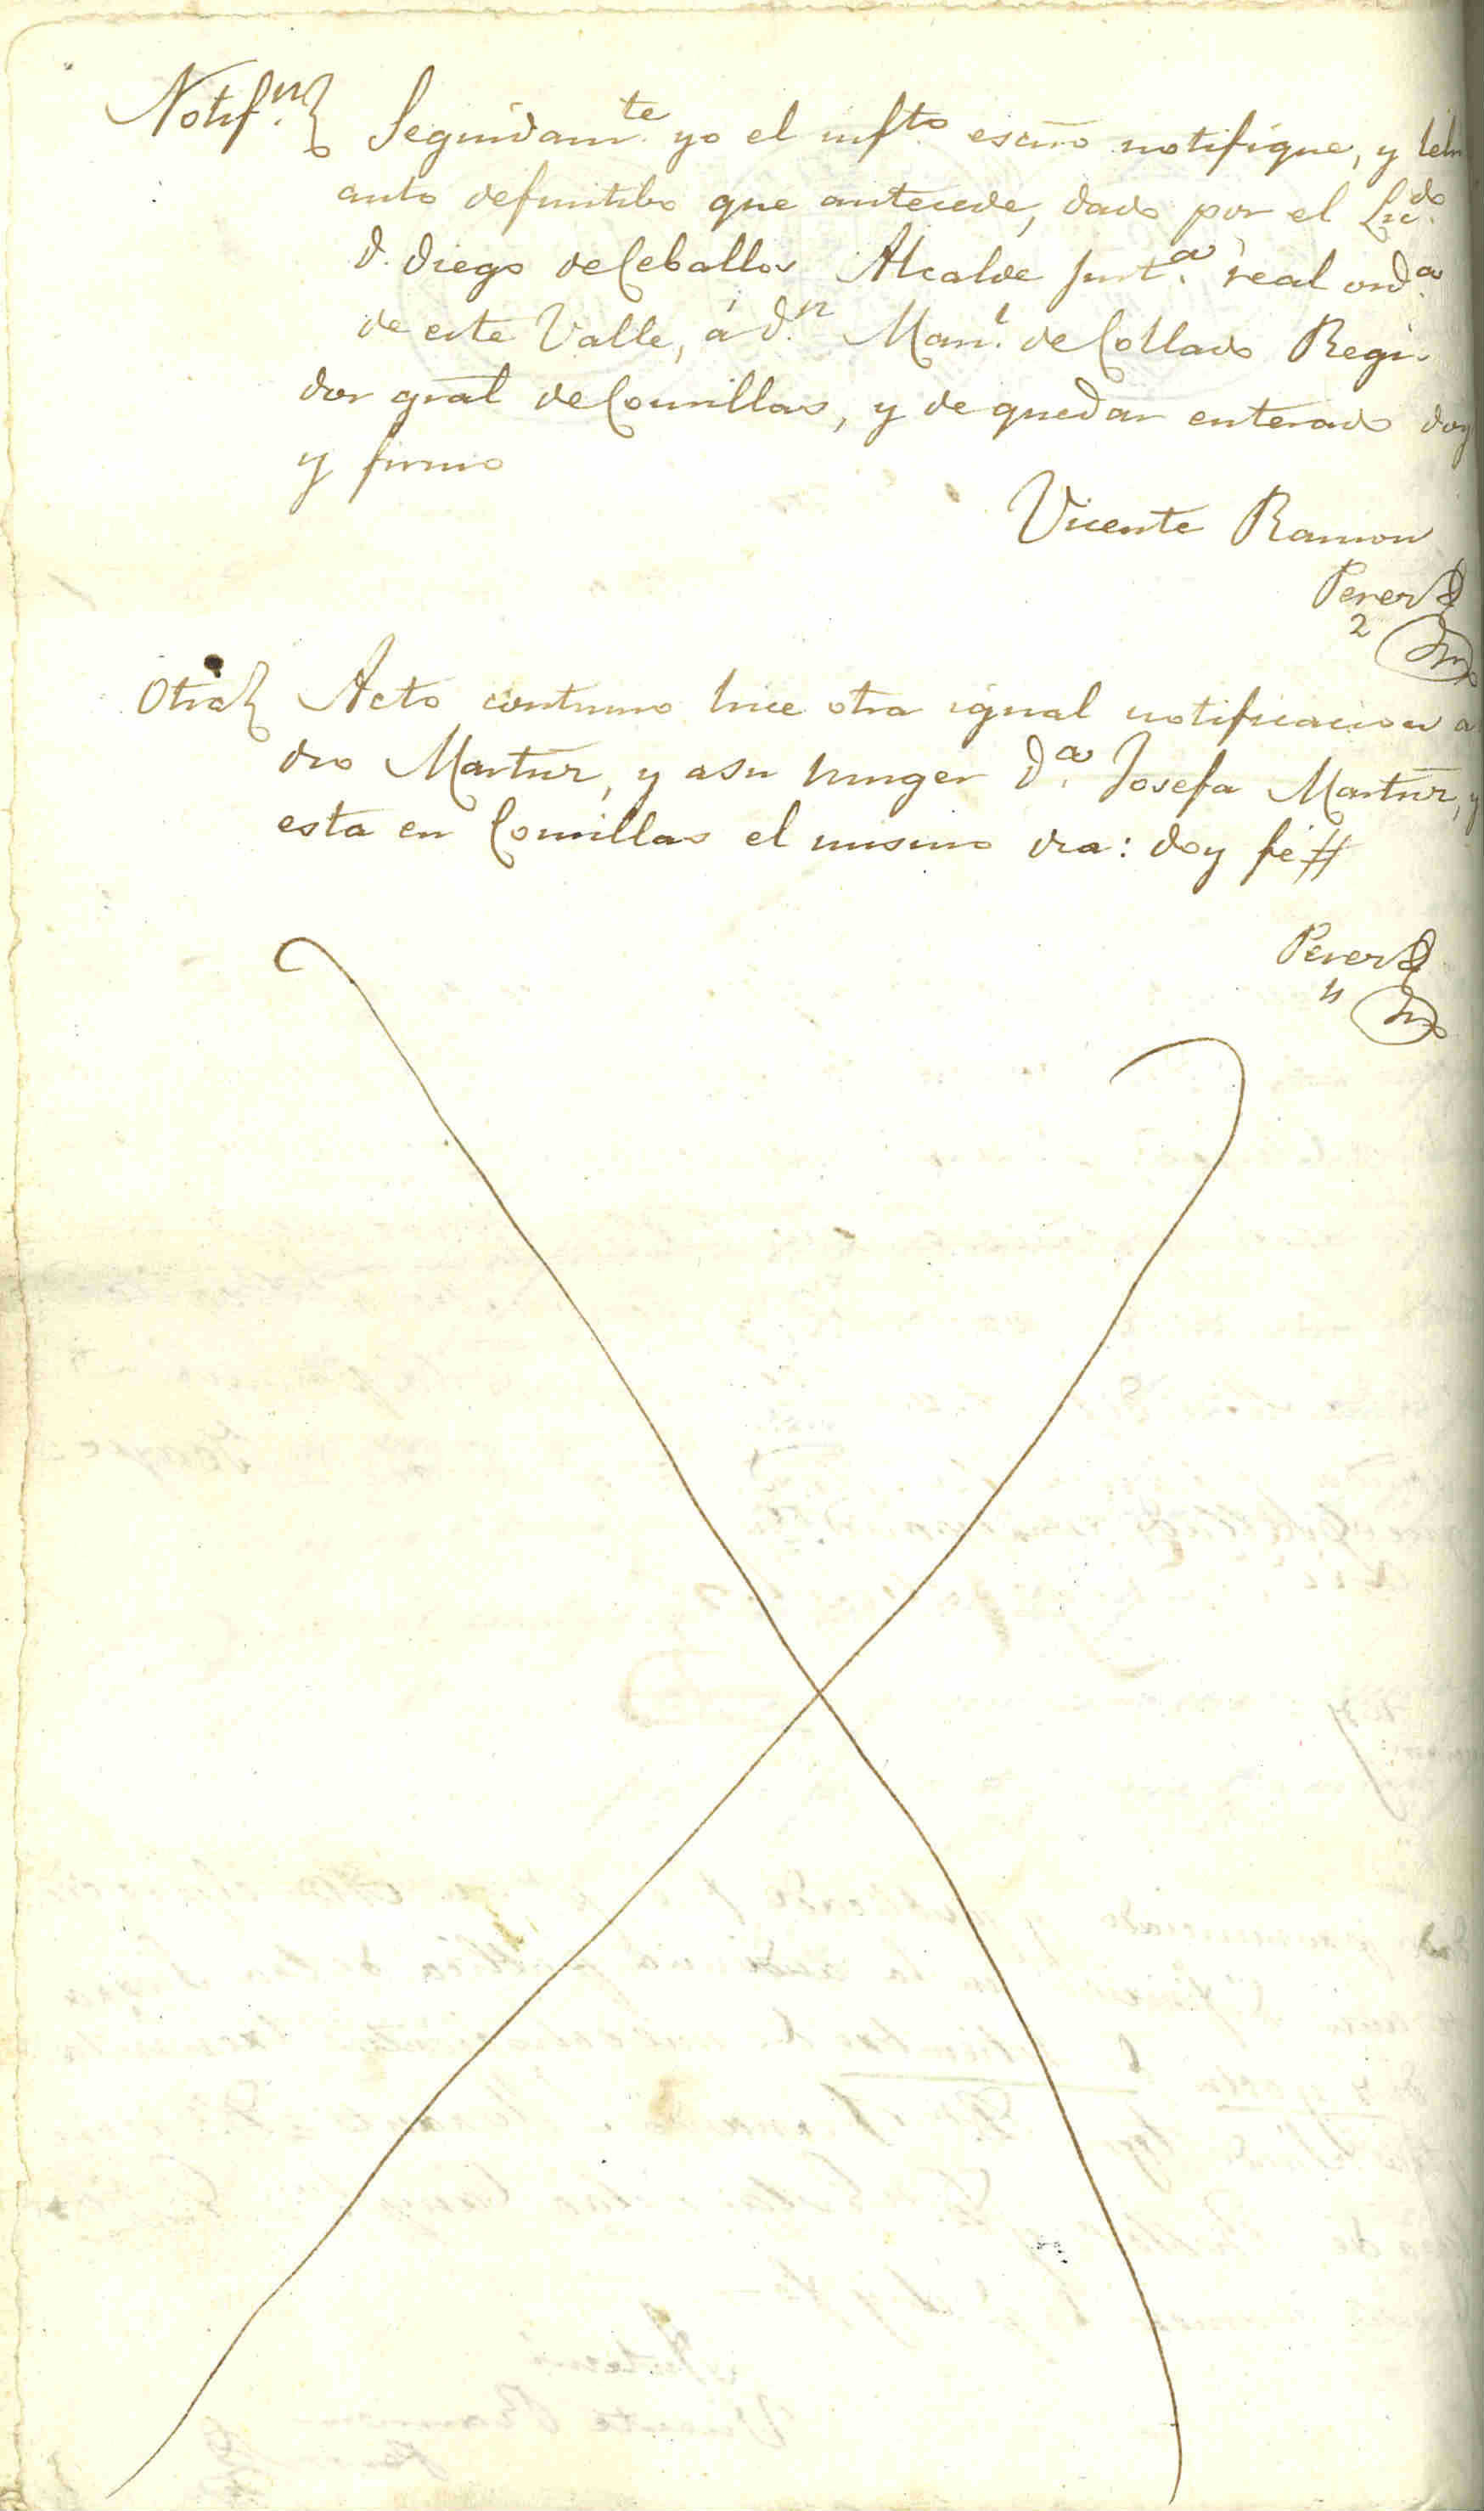 Notif.n Seguidam.te yo el infto escno notifique, y
auto definitibo que antecede, dado por el Licdo
D. Diego de Ceballos Alcalde just.a real ord.a
de este Valle, á D.n Man.l de Collado Regi-
dor gral de Comillas, y de quedar enterado doy
y firmo
Vicente Ramon
Perez
Otra Acto continuo hice otra igual notificacion a
dro Martnz, y a su muger D.a Josefa Martnz, y
esta en Comillas el mismo dia: doy fé
Perez